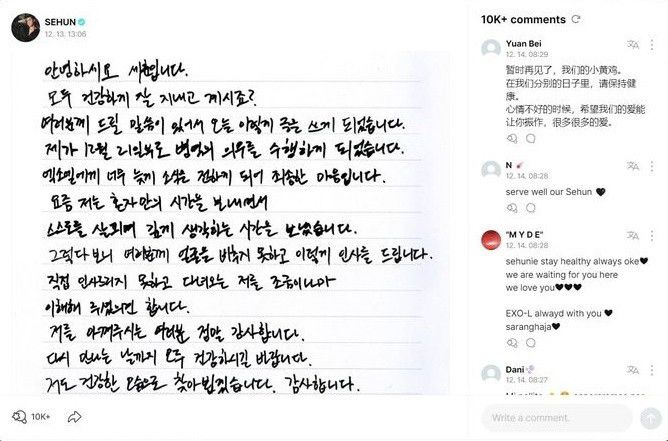 SEHUN
12. 13. 13:06
안녕하세요 세훈입니다.
모두 건강하게 잘 지내고 계시죠?
여러분께 드릴 말씀이 있어서 오늘 이렇게 글을 쓰게 되었습니다.
제가 12월 21일부로 병역의 의무를 수행하게 되었습니다.
엑소엘에게 너무 늦게 소식을 전하게 되어 죄송한 마음입니다.
요즘 저는 혼자만의 시간을 보내면서
스스로를 살피며 깊게 생각하는 시간을 보냈습니다.
그렇다 보니 여러분께 얼굴을 비추지 못하고 이렇게 인사를 드립니다.
직접 인사드리지 못하고 다녀오는 저를 조금이나마
이해해 주셨으면 합니다.
저를 아껴주시는 여러분 정말 감사합니다.
다시 만나는 날까지 모두 건강하시길 바랍니다.
저도 건강한 모습으로 찾아뵙겠습니다. 감사합니다.
10K+
10K+ comments
Yuan Bei
12. 14. 08:29
暂时再见了，我们的小黄鸡。
在我们分别的日子里，请保持健
康。
心情不好的时候，希望我们的爱能
让你振作，很多很多的爱。
N
12. 14. 08:28
serve well our Sehun 🖤
"M Y D E"
12. 14. 08:28
sehunie stay healthy always oke🖤
we are waiting for you here
we love you🖤🖤🖤
EXO-L alwayd with you 🖤
saranghaja🖤
Dani
12. 14. 08:27
Write a comment.